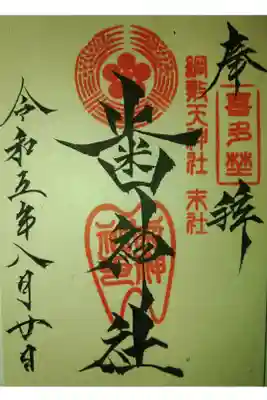 奉拝
喜多埜
綱敷天神社 末社
歯神社
令和五年八月廿日